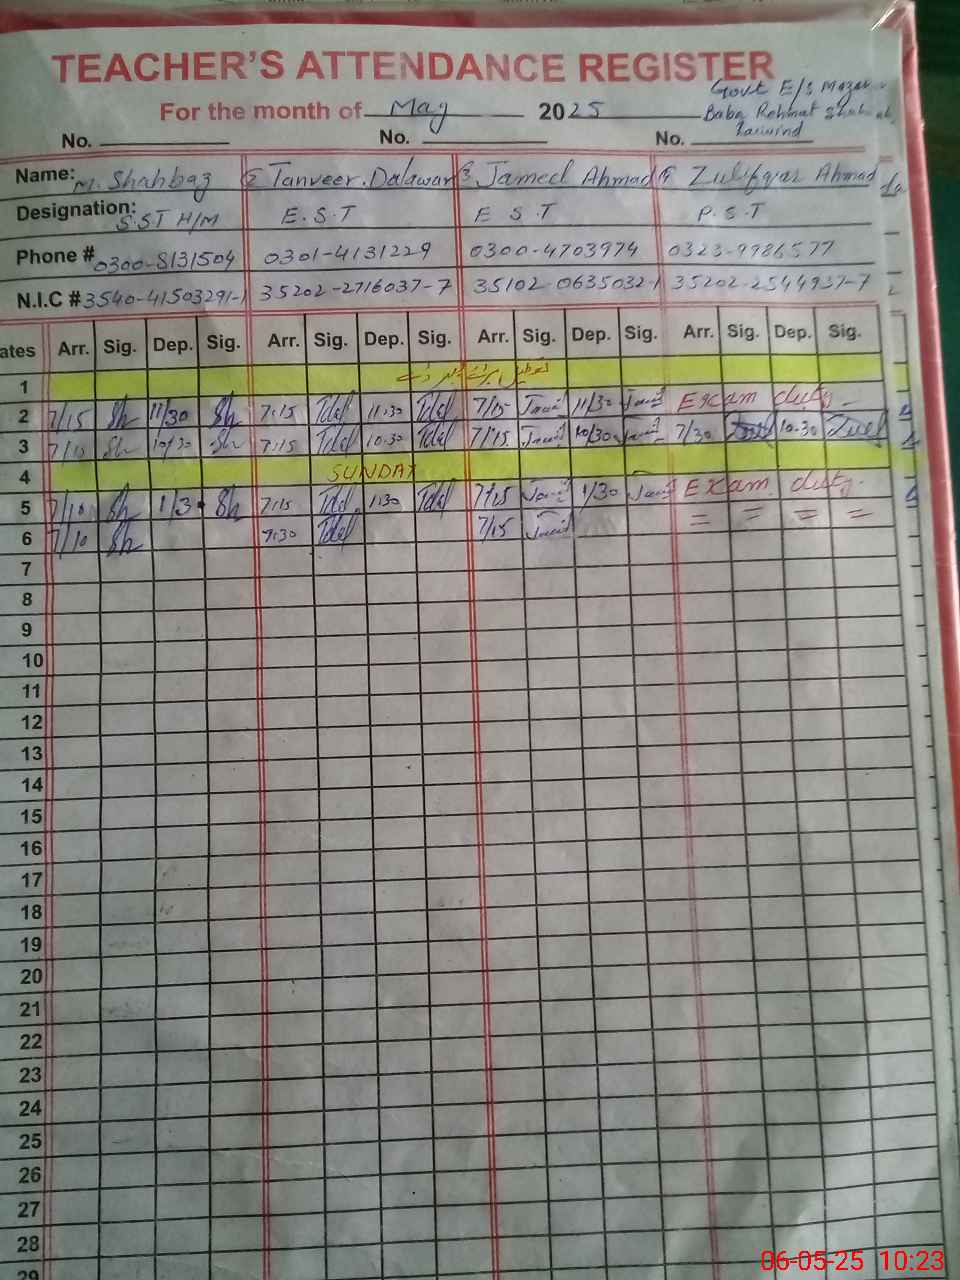 TEACHER'S ATTENDANCE REGISTER
For the month of May 2025
Govt E/S Mazar
Baba Rehmat Shah
Raiwind
No. No. No.
Name: M. Shahbaz 2 Tanveer. Dalawar 3 Jameel Ahmad 4 Zulifqar Ahmad
Designation: S.ST H/M E.S.T E S.T P.S.T
Phone # 0300-8131504 0301-4131229 0300-4703974 0323-9986577
N.I.C # 3540-41503291-1 35202-2716037-7 35102-0635032-1 35202-2544937-7
ates Arr. Sig. Dep. Sig. Arr. Sig. Dep. Sig. Arr. Sig. Dep. Sig. Arr. Sig. Dep. Sig.
1
2 7/15 Sh 11/30 Sh 7:15 Tdel 11:30 Tdel 7/15 Jamil 11/30 Jamil Exam duty
3 7/10 Sh 10/30 Sh 7:15 Tdel 10:30 Tdel 7/15 Jamil 10/30 Jamil 7/30 Zuel 10:30 Zuel
4 SUNDAY
5 7/10 Sh 1/30 Sh 7:15 Tdel 1:30 Tdel 7/15 Jamil 1/30 Jamil Exam duty
6 7/10 Sh 7:30 Tdel 7/15 Jamil = = = =
7
8
9
10
11
12
13
14
15
16
17
18
19
20
21
22
23
24
25
26
27
28
29
06-05-25 10:23